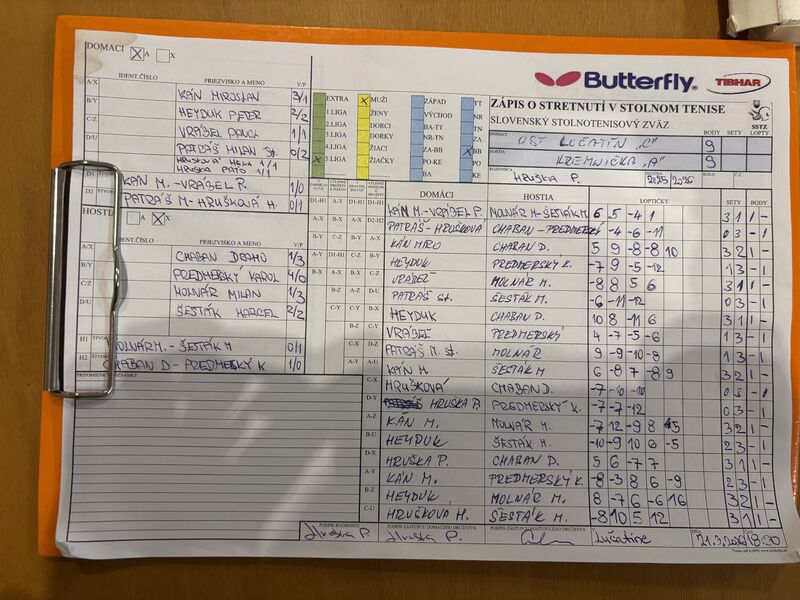 DOMACI X A X
IDENT.ČÍSLO PRIEZVISKO A MENO V/P
A/X KÁN MIROSLAV 3/1
B/Y HEYDUK PETER 2/2
C/Z VRÁBEL PAVOL 1/1
D/U PATRÁŠ MILAN St. 0/2
HRUŠKOVÁ HELA 1/1
HRUŠKA PAŤO 1/1
D1 KÁN M.-VRÁBEL P. 1/0
D2 PATRÁŠ M-HRUŠKOVÁ H. 0/1
HOSTIA A X X
IDENT.ČÍSLO PRIEZVISKO A MENO V/P
A/X CHABAN DRAHO 1/3
B/Y PREDMERSKÝ KAROL 4/0
C/Z MOLNÁR MILAN 1/3
D/U ŠESTÁK MARCEL 2/2
H1 MOLNÁR M. - ŠESTÁK M 0/1
H2 CHABAN D - PREDMERSKÝ K 1/0
PRIPOMIENKY ZÁZNAMY
Butterfly TIBHAR
EXTRA X MUŽI ZÁPAD TT
1.LIGA ŽENY VÝCHOD NR
2.LIGA DORCI BA-TT TN
3.LIGA DORKY NR-TN ZA
4.LIGA ŽIACI ZA-BB X BB
X 5.LIGA ŽIAČKY PO-KE PO
KE
ZÁPIS O STRETNUTÍ V STOLNOM TENISE
SLOVENSKÝ STOLNOTENISOVÝ ZVÄZ SSTZ
DOMÁCI OŠT LUČATÍN "C" BODY 9 SETY LOPTY
HOSTIA KREMNIČKA "A" 9
ROZHODCA HRUŠKA P. 2025/2026 KOLO
DOMÁCI HOSTIA LOPTIČKY SETY BODY
KÁN M.-VRÁBEL P. MOLNÁR M-ŠESTÁK M 6 5 -4 1 3 1 1 -
PATRÁŠ-HRUŠKOVÁ CHABAN-PREDMERSKÝ -4 -6 -11 0 3 - 1
KÁN MIRO CHABAN D. 5 9 -8 -8 10 3 2 1 -
HEYDUK PREDMERSKÝ K. -7 9 -5 -12 1 3 - 1
VRÁBEL MOLNÁR M. -8 8 5 6 3 1 1 -
PATRÁŠ st. ŠESTÁK M. -6 -11 -12 0 3 - 1
HEYDUK CHABAN D. 10 8 -11 6 3 1 1 -
VRÁBEL PREDMERSKÝ 4 -7 -5 -6 1 3 - 1
PATRÁŠ M. st. MOLNÁR 9 -9 -10 -8 1 3 - 1
KÁN M. ŠESTÁK M 6 -8 7 -8 9 3 2 1 -
C-X HRUŠKOVÁ CHABAN D. -7 -10 -10 0 3 - 1
D-Y HRUŠKA P. PREDMERSKÝ K. -7 -7 -12 0 3 - 1
A-Z KÁN M. MOLNÁR M. -7 12 -9 8 3 2 1 -
B-U HEYDUK ŠESTÁK M. -10 -9 10 6 -5 2 3 - 1
D-X HRUŠKA P. CHABAN D. 5 6 -7 7 3 1 1 -
A-Y KÁN M. PREDMERSKÝ K. -8 -3 8 6 -9 2 3 - 1
B-Z HEYDUK MOLNÁR M. 8 -7 6 -6 16 3 2 1 -
C-U HRUČKOVA H. ŠESTÁK M. -8 10 5 12 3 1 1 -
PODPIS ROZHODCU PODPIS ZÁSTUPCU DOMÁCEHO DRUŽSTVA PODPIS ZÁSTUPCU HOSŤUJÚCEHO DRUŽSTVA DŇA
Hruška P. Hruška P. Lučatíne 21.3.2026 18:30